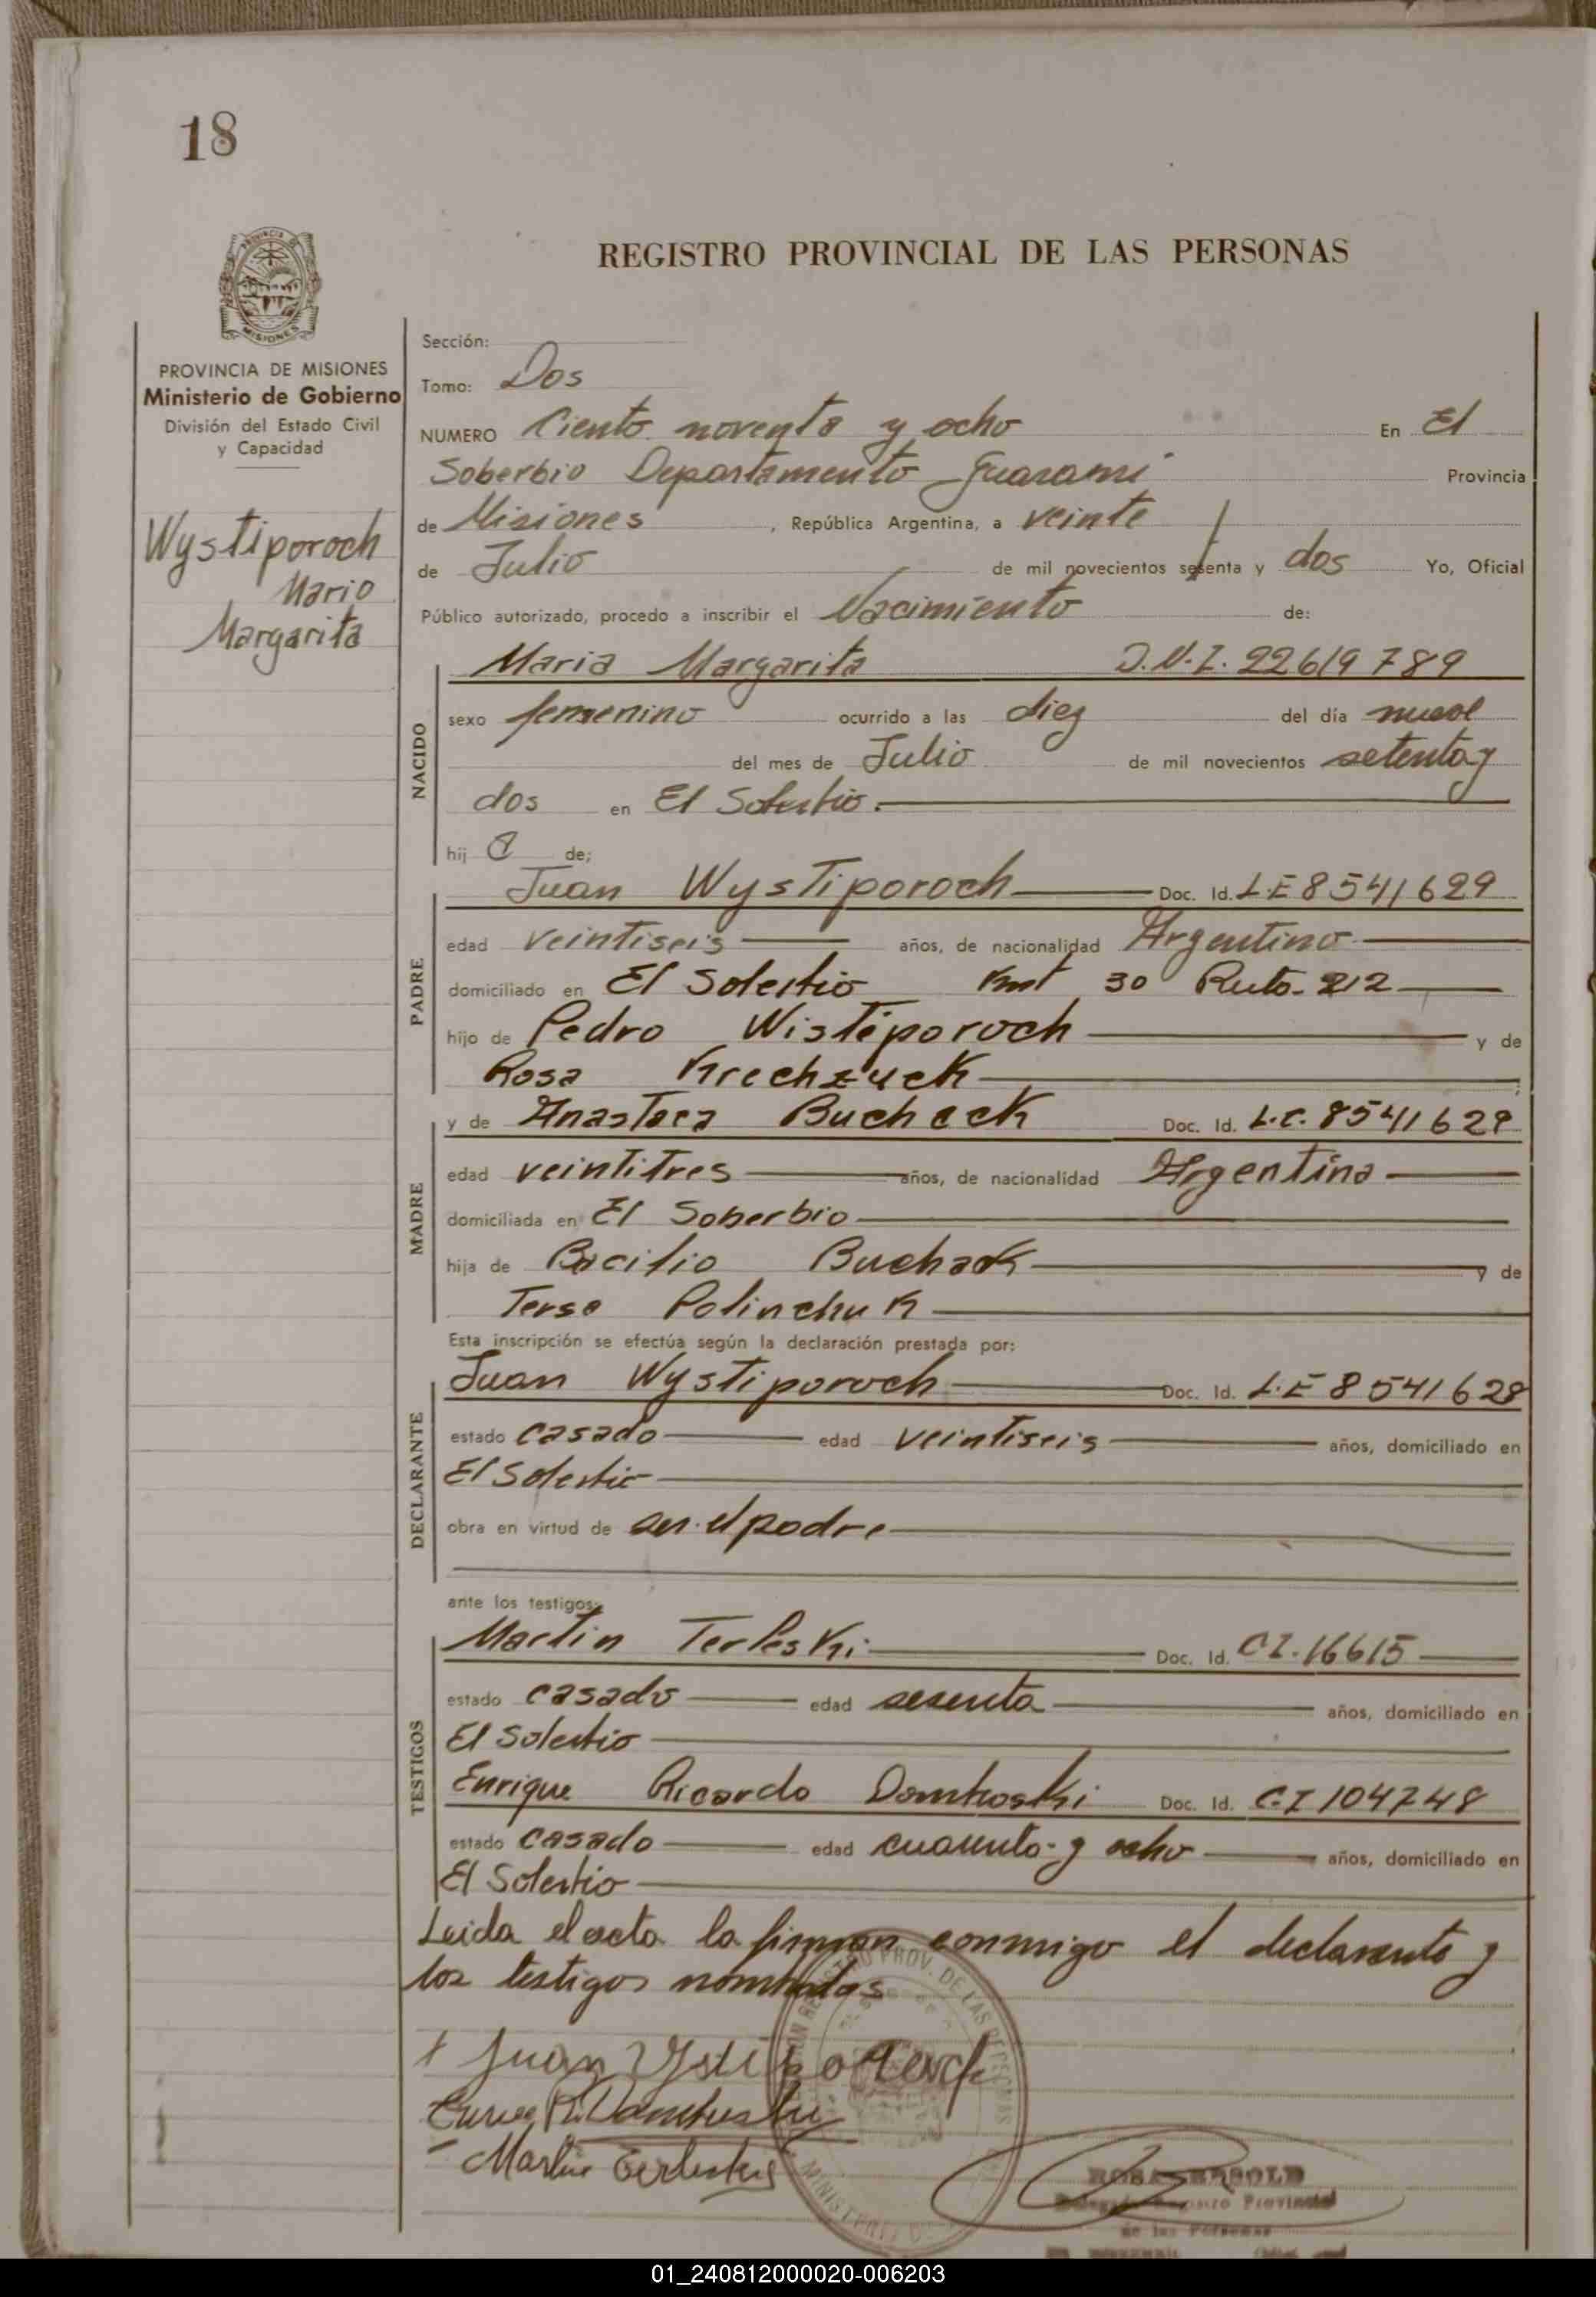 18
REGISTRO PROVINCIAL DE LAS PERSONAS
PROVINCIA DE
MISIONES
PROVINCIA DE MISIONES
Ministerio de Gobierno
División del Estado Civil
y Capacidad
Wystiporoch
Mario
Margarita
Sección:
Tomo: Dos
NUMERO Ciento noventa y ocho En El
Soberbio Departamento Guarani Provincia
de Misiones, República Argentina, a veinte
de Julio de mil novecientos sesenta y dos Yo, Oficial
Público autorizado, procedo a inscribir el Nacimiento de:
NACIDO
Maria Margarita D.N.I. 22619789
sexo femenino ocurrido a las diez del día nueve
del mes de Julio de mil novecientos setenta y
dos en El Soberbio.
hij a de;
PADRE
Juan Wystiporoch Doc. Id. L.E 8541629
edad veintiseis años, de nacionalidad Argentino
domiciliado en El Soberbio Kmt 30 Ruta 212
hijo de Pedro Wistiporoch y de
Rosa Krechzuck;
MADRE
y de Anastaca Bucheck Doc. Id. L.C. 8541629
edad veintitres años, de nacionalidad Argentina
domiciliada en El Soberbio
hija de Bacilio Buchak y de
Tersa Polinchuk
Esta inscripción se efectúa según la declaración prestada por:
DECLARANTE
Juan Wystiporoch Doc. Id. L.E 8541628
estado casado edad veintiseis años, domiciliado en
El Soberbio
obra en virtud de ser el padre
ante los testigos:
TESTIGOS
Martin Terleski Doc. Id. C.I. 16615
estado casado edad sesenta años, domiciliado en
El Soberbio
Enrique Ricardo Domkoski Doc. Id. C.I 104748
estado casado edad cuarenta y ocho años, domiciliado en
El Soberbio
Leida el acta la firman conmigo el declarante y
los testigos nombrados
Juan
Martin
REGISTRO PROV. DE LAS PERSONAS
MINISTERIO DE
ROSA
Registro Provincial
de las Personas
01_240812000020-006203